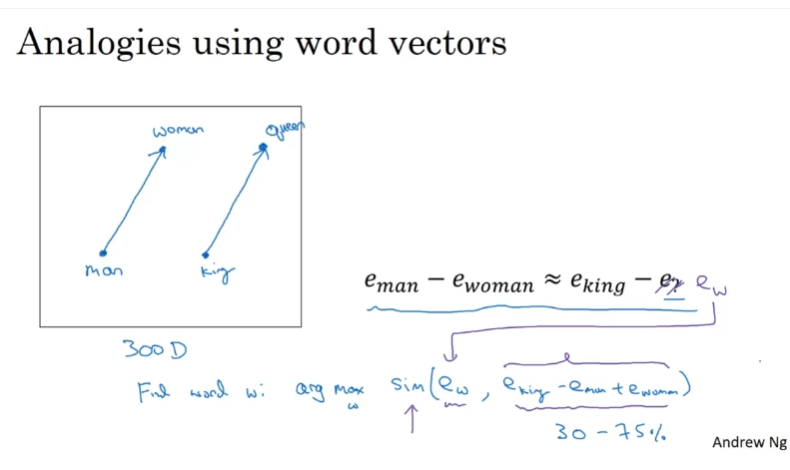 Analogies using word vectors
woman queen
man king
e_man − e_woman ≈ e_king − e_? e_w
300 D
Find word w: arg max_w sim(e_w, e_king − e_man + e_woman)
30 - 75%
Andrew Ng